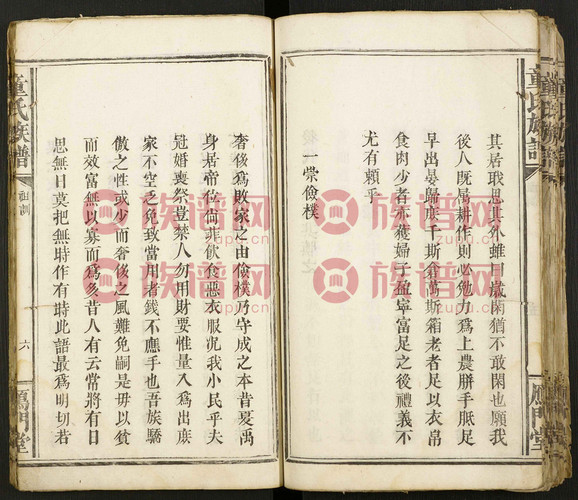 童氏族譜
其居我思其外雖日戲閑猶不敢閑也願我
後人既勗耕作則必勉力爲上農胼手胝足
早出晏歸庶千斯倉萬斯箱老者足以衣帛
食肉少者亦獲婦子盈寧富足之後禮義不
尤有賴乎
一崇儉樸
鴈門堂
奢侈爲敗家之由儉樸乃守成之本昔夏禹
身居帝位尚菲飲食惡衣服況我小民乎夫
冠婚喪祭豈禁人勿用財要惟量入爲出庶
家不空乏免致當用者錢不應手也吾族驕
傲之性或少而奢侈之風難免嗣是毋以貧
而效富無以寡而爲多昔人有云常將有日
思無日莫把無時作有時此語最爲明切若
童氏族譜
祖訓
六
鴈門堂
族谱网
zupu.cn
族谱网
zupu.cn
族谱网
zupu.cn
族谱网
zupu.cn